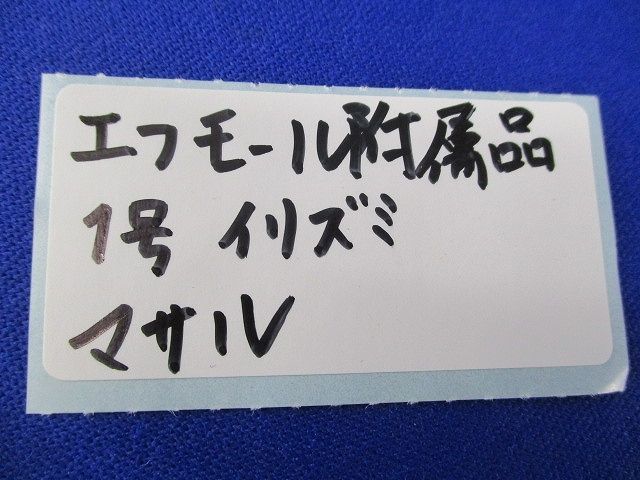 エフモール附属品
1号 イリズミ
マサル